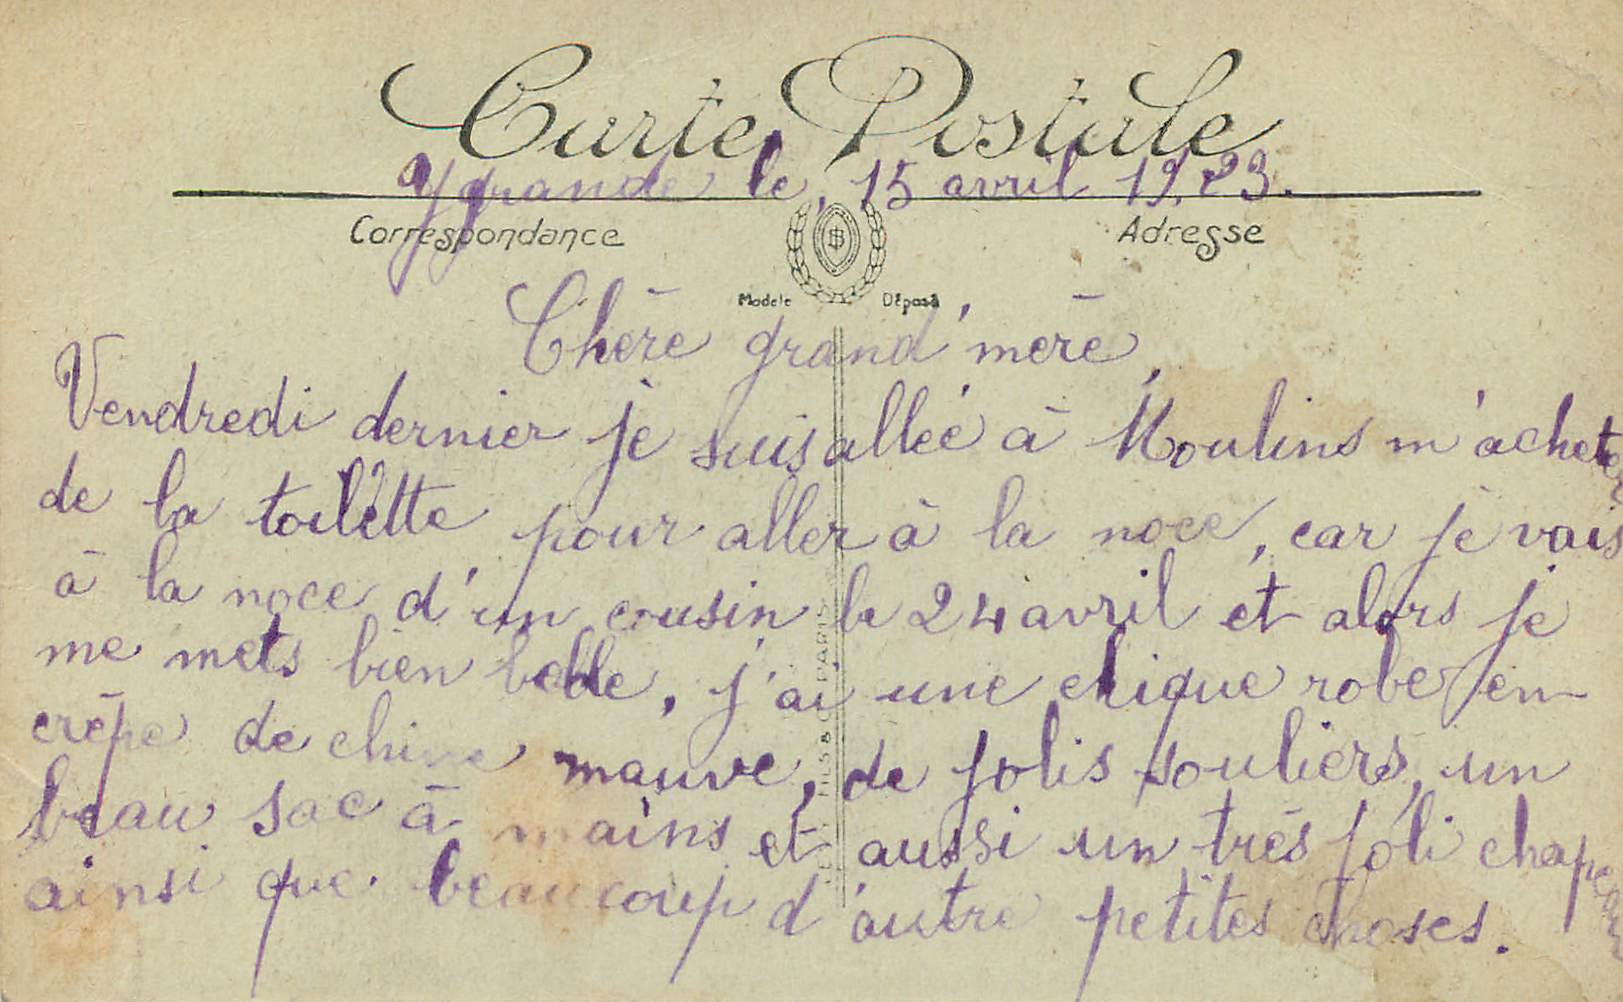 Carte Postale
Ygrande le, 15 avril 1923.
Correspondance
Adresse
Modele Déposé
Chère grand'mère,
Vendredi dernier je suis allée à Moulins m'acheter
de la toilette pour aller à la noce, car je vais
à la noce d'un cousin le 24 avril et alors je
me mets bien belle, j'ai une chique robe en
crêpe de chine mauve, de jolis souliers, un
beau sac à mains et aussi un très joli chapeau
ainsi que beaucoup d'autre petites choses.